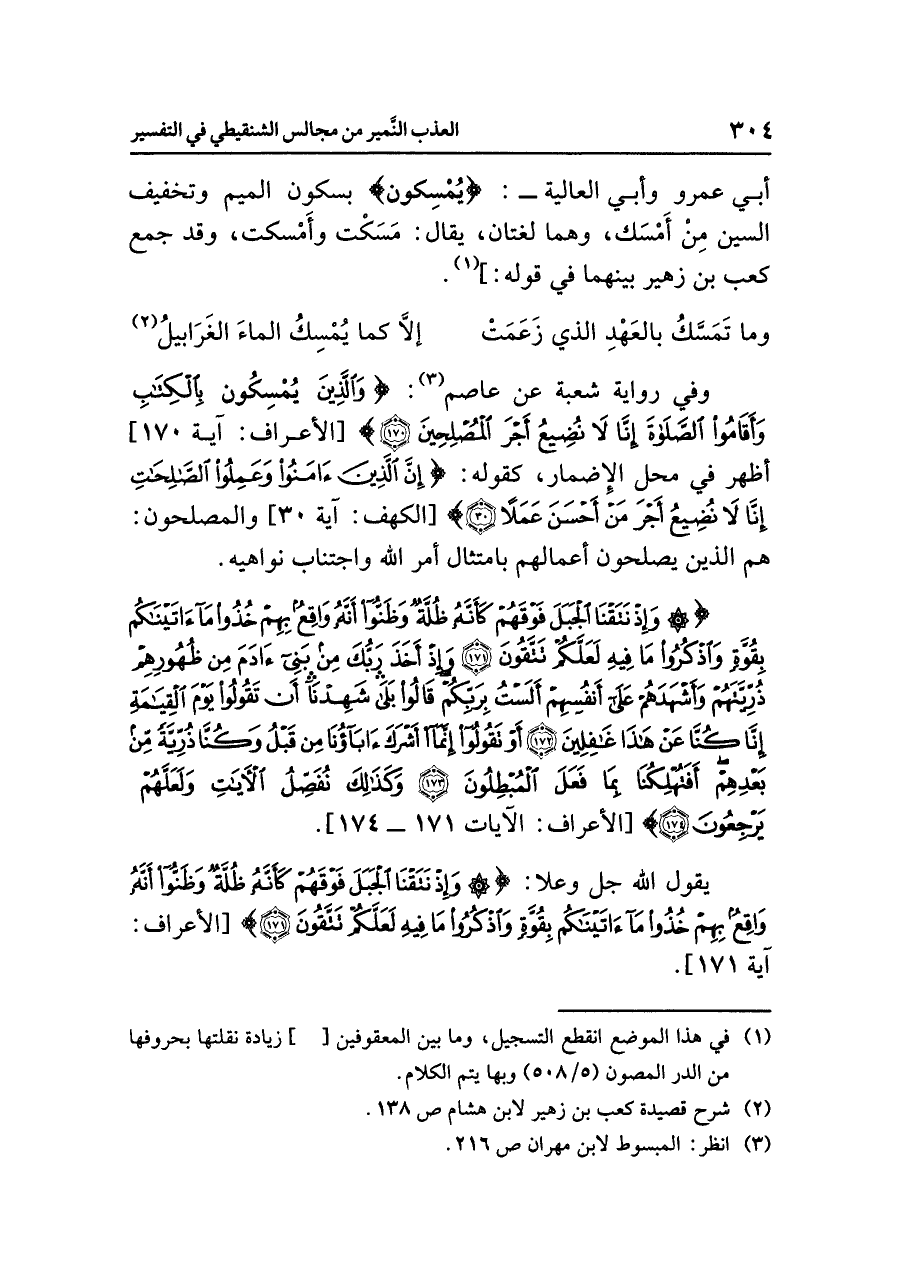 ٣٠٤ العذب النَّمير من مجالس الشنقيطي في التفسير
أبي عمرو وأبي العالية ــ : ﴿يُمْسِكون﴾ بسكون الميم وتخفيف
السين مِنْ أَمْسَك، وهما لغتان، يقال: مَسَكْت وأَمْسكت، وقد جمع
كعب بن زهير بينهما في قوله:](١).
وما تَمَسَّكُ بالعَهْدِ الذي زَعَمَتْ إلاَّ كما يُمْسِكُ الماءَ الغَرَابيلُ(٢)
وفي رواية شعبة عن عاصم(٣): ﴿وَٱلَّذِينَ يُمْسِكُون بِٱلْكِتَٰبِ
وَأَقَامُوا۟ ٱلصَّلَوٰةَ إِنَّا لَا نُضِيعُ أَجْرَ ٱلْمُصْلِحِينَ ١٧٠﴾ [الأعراف: آية ١٧٠]
أظهر في محل الإِضمار، كقوله: ﴿إِنَّ ٱلَّذِينَ ءَامَنُوا۟ وَعَمِلُوا۟ ٱلصَّٰلِحَٰتِ
إِنَّا لَا نُضِيعُ أَجْرَ مَنْ أَحْسَنَ عَمَلًا ٣٠﴾ [الكهف: آية ٣٠] والمصلحون:
هم الذين يصلحون أعمالهم بامتثال أمر الله واجتناب نواهيه.
﴿۞ وَإِذْ نَتَقْنَا ٱلْجَبَلَ فَوْقَهُمْ كَأَنَّهُۥ ظُلَّةٌ وَظَنُّوٓا۟ أَنَّهُۥ وَاقِعٌۢ بِهِمْ خُذُوا۟ مَآ ءَاتَيْنَٰكُم
بِقُوَّةٍ وَٱذْكُرُوا۟ مَا فِيهِ لَعَلَّكُمْ تَتَّقُونَ ١٧١ وَإِذْ أَخَذَ رَبُّكَ مِنۢ بَنِىٓ ءَادَمَ مِن ظُهُورِهِمْ
ذُرِّيَّتَهُمْ وَأَشْهَدَهُمْ عَلَىٰٓ أَنفُسِهِمْ أَلَسْتُ بِرَبِّكُمْ ۖ قَالُوا۟ بَلَىٰ ۛ شَهِدْنَآ ۛ أَن تَقُولُوا۟ يَوْمَ ٱلْقِيَٰمَةِ
إِنَّا كُنَّا عَنْ هَٰذَا غَٰفِلِينَ ١٧٢ أَوْ تَقُولُوٓا۟ إِنَّمَآ أَشْرَكَ ءَابَآؤُنَا مِن قَبْلُ وَكُنَّا ذُرِّيَّةً مِّنۢ
بَعْدِهِمْ ۖ أَفَتُهْلِكُنَا بِمَا فَعَلَ ٱلْمُبْطِلُونَ ١٧٣ وَكَذَٰلِكَ نُفَصِّلُ ٱلْءَايَٰتِ وَلَعَلَّهُمْ
يَرْجِعُونَ ١٧٤﴾ [الأعراف: الآيات ١٧١ ــ ١٧٤].
يقول الله جل وعلا: ﴿۞ وَإِذْ نَتَقْنَا ٱلْجَبَلَ فَوْقَهُمْ كَأَنَّهُۥ ظُلَّةٌ وَظَنُّوٓا۟ أَنَّهُۥ
وَاقِعٌۢ بِهِمْ خُذُوا۟ مَآ ءَاتَيْنَٰكُم بِقُوَّةٍ وَٱذْكُرُوا۟ مَا فِيهِ لَعَلَّكُمْ تَتَّقُونَ ١٧١﴾ [الأعراف:
آية ١٧١].
(١) في هذا الموضع انقطع التسجيل، وما بين المعقوفين [ ] زيادة نقلتها بحروفها
من الدر المصون (٥٠٨/٥) وبها يتم الكلام.
(٢) شرح قصيدة كعب بن زهير لابن هشام ص ١٣٨.
(٣) انظر: المبسوط لابن مهران ص ٢١٦.